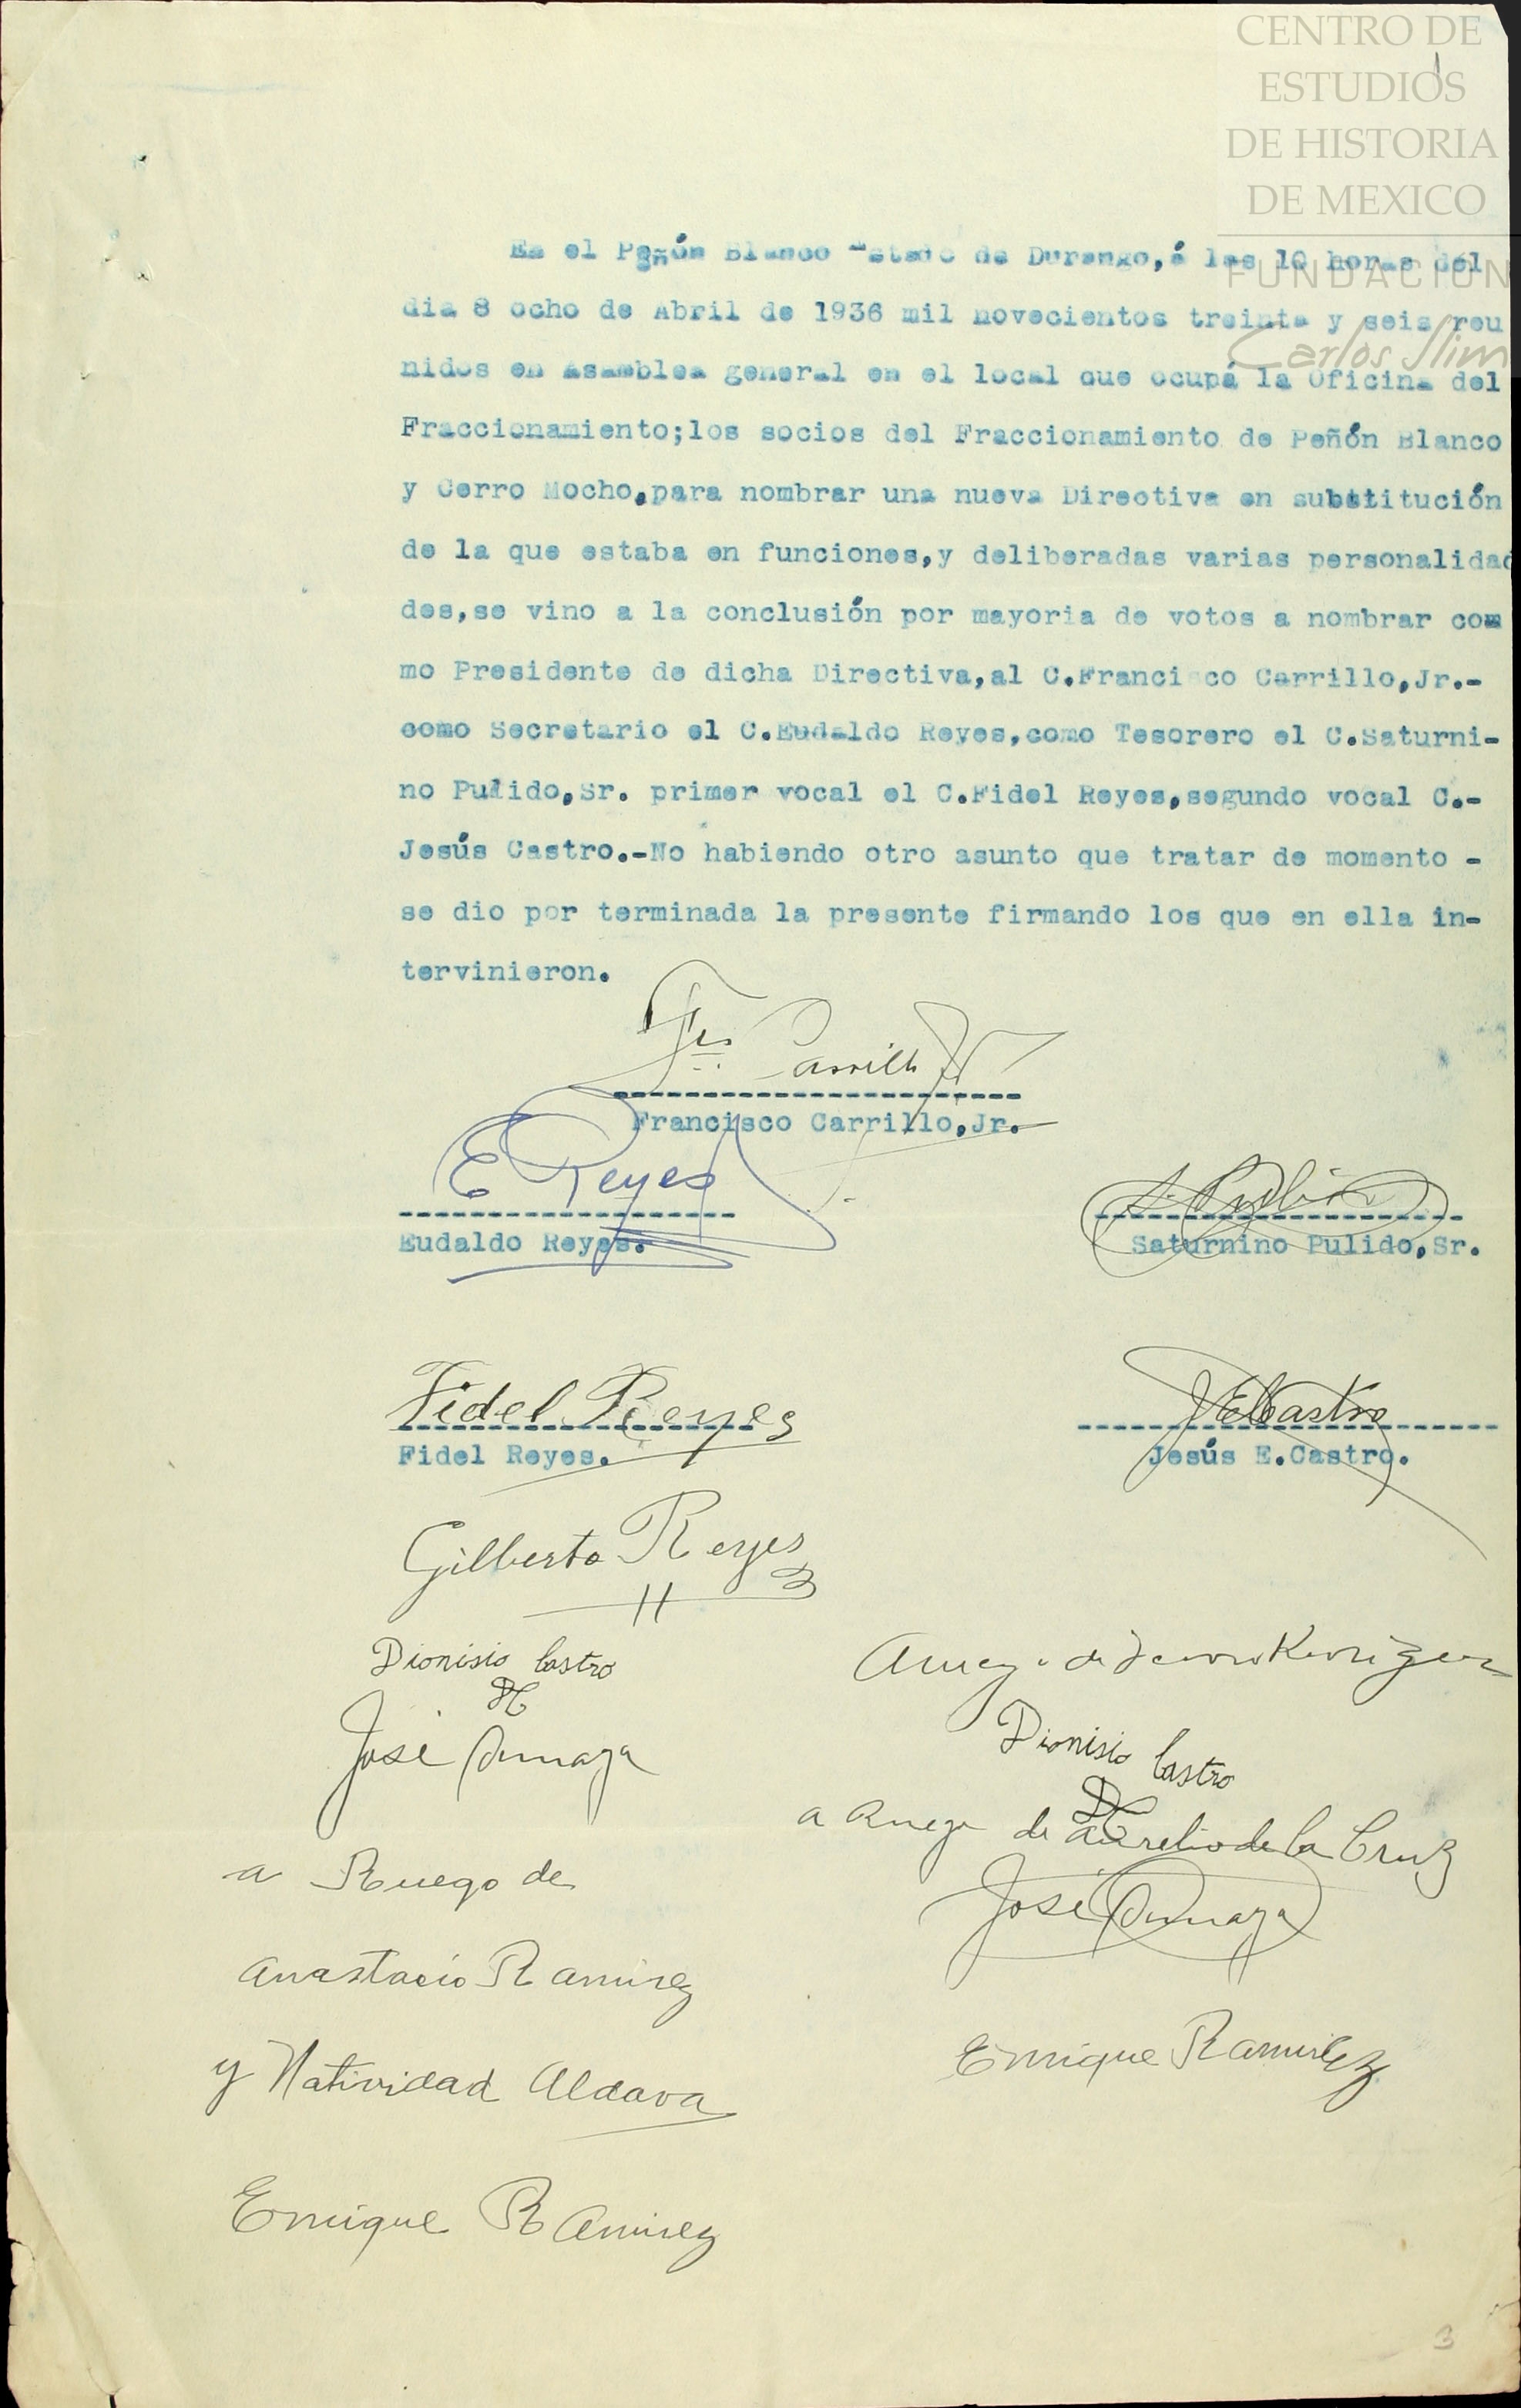 CENTRO DE
ESTUDIOS
DE HISTORIA
DE MEXICO
FUNDACION
Carlos Slim
En el Peñón Blanco Estado de Durango,á las 10 horas del
dia 8 ocho de Abril de 1936 mil novecientos treinta y seis reu
nidos en Asamblea general en el local que ocupá la Oficina del
Fraccionamiento;los socios del Fraccionamiento de Peñón Blanco
y Cerro Mocho,para nombrar una nueva Directiva en substitución
de la que estaba en funciones,y deliberadas varias personalidad
des,se vino a la conclusión por mayoria de votos a nombrar com
mo Presidente de dicha Directiva,al C.Francisco Carrillo,Jr.-
como Secretario el C.Eudaldo Reyes,como Tesorero el C.Saturni-
no Pulido,Sr. primer vocal el C.Fidel Reyes,segundo vocal C.-
Jesús Castro.-No habiendo otro asunto que tratar de momento -
se dio por terminada la presente firmando los que en ella in-
tervinieron.
Fco Carrillo Jr
Francisco Carrillo,Jr.
E Reyes
Eudaldo Reyes.
S. Pulido
Saturnino Pulido,Sr.
Fidel Reyes
Fidel Reyes.
J E Castro
Jesús E.Castro.
Gilberto Reyes
Dionisio Castro
DC
José
a Ruego de
Dionisio Castro
DC
a Ruego de Aurelio de la Cruz
José
a Ruego de
Anastacio Ramirez
y Natividad Aldava
Enrique Ramirez
Enrique Ramirez
3